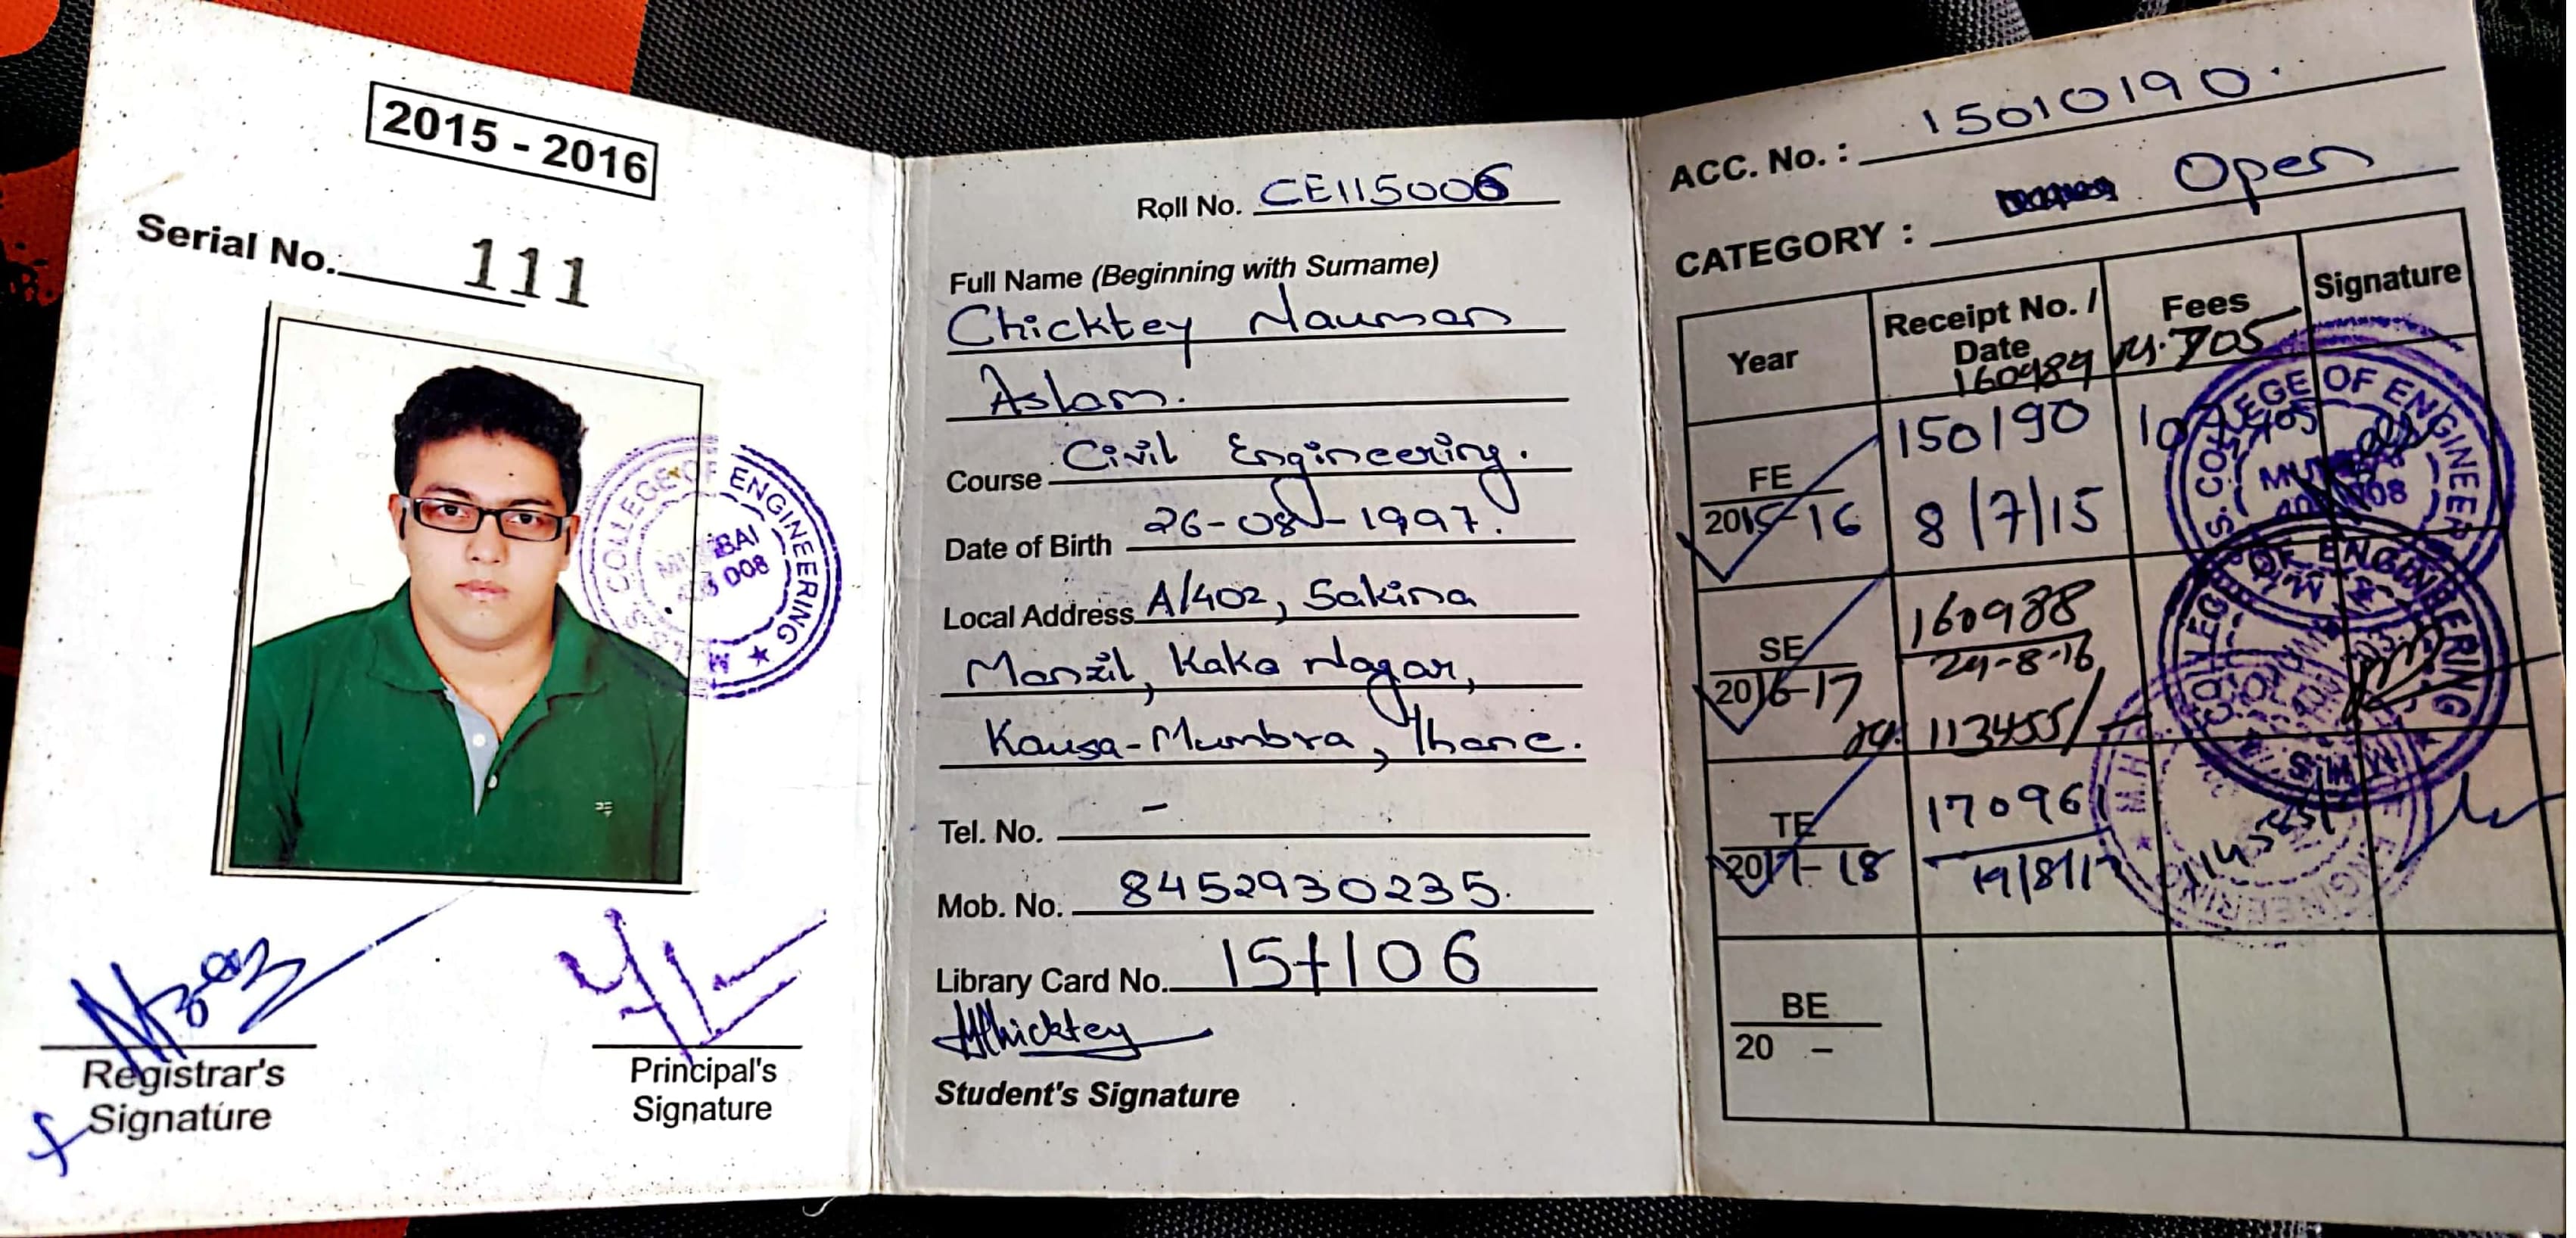 2015 - 2016
Serial No. 111
COLLEGE OF ENGINEERING
MUMBAI
008
Registrar's
Signature
Principal's
Signature
Roll No. CE115006
Full Name (Beginning with Surname)
Chicktey Nauman
Aslam.
Course Civil Engineering.
Date of Birth 26-08-1997.
Local Address A/402, Sakina
Manzil, Kaka Nagar,
Kausa-Mumbra, Thane.
Tel. No. -
Mob. No. 8452930235.
Library Card No. 15+106
Chicktey
Student's Signature
ACC. No. : 15010190.
CATEGORY : Open
Year
Receipt No. /
Date
Fees
Signature
160989
FE
2015-16
150190
8/7/15
COLLEGE OF ENGINEERING
SE
2016-17
160988
24-8-16
113455/-
OF ENGINEERING
TE
2017-18
17096
19/8/17
BE
20 -